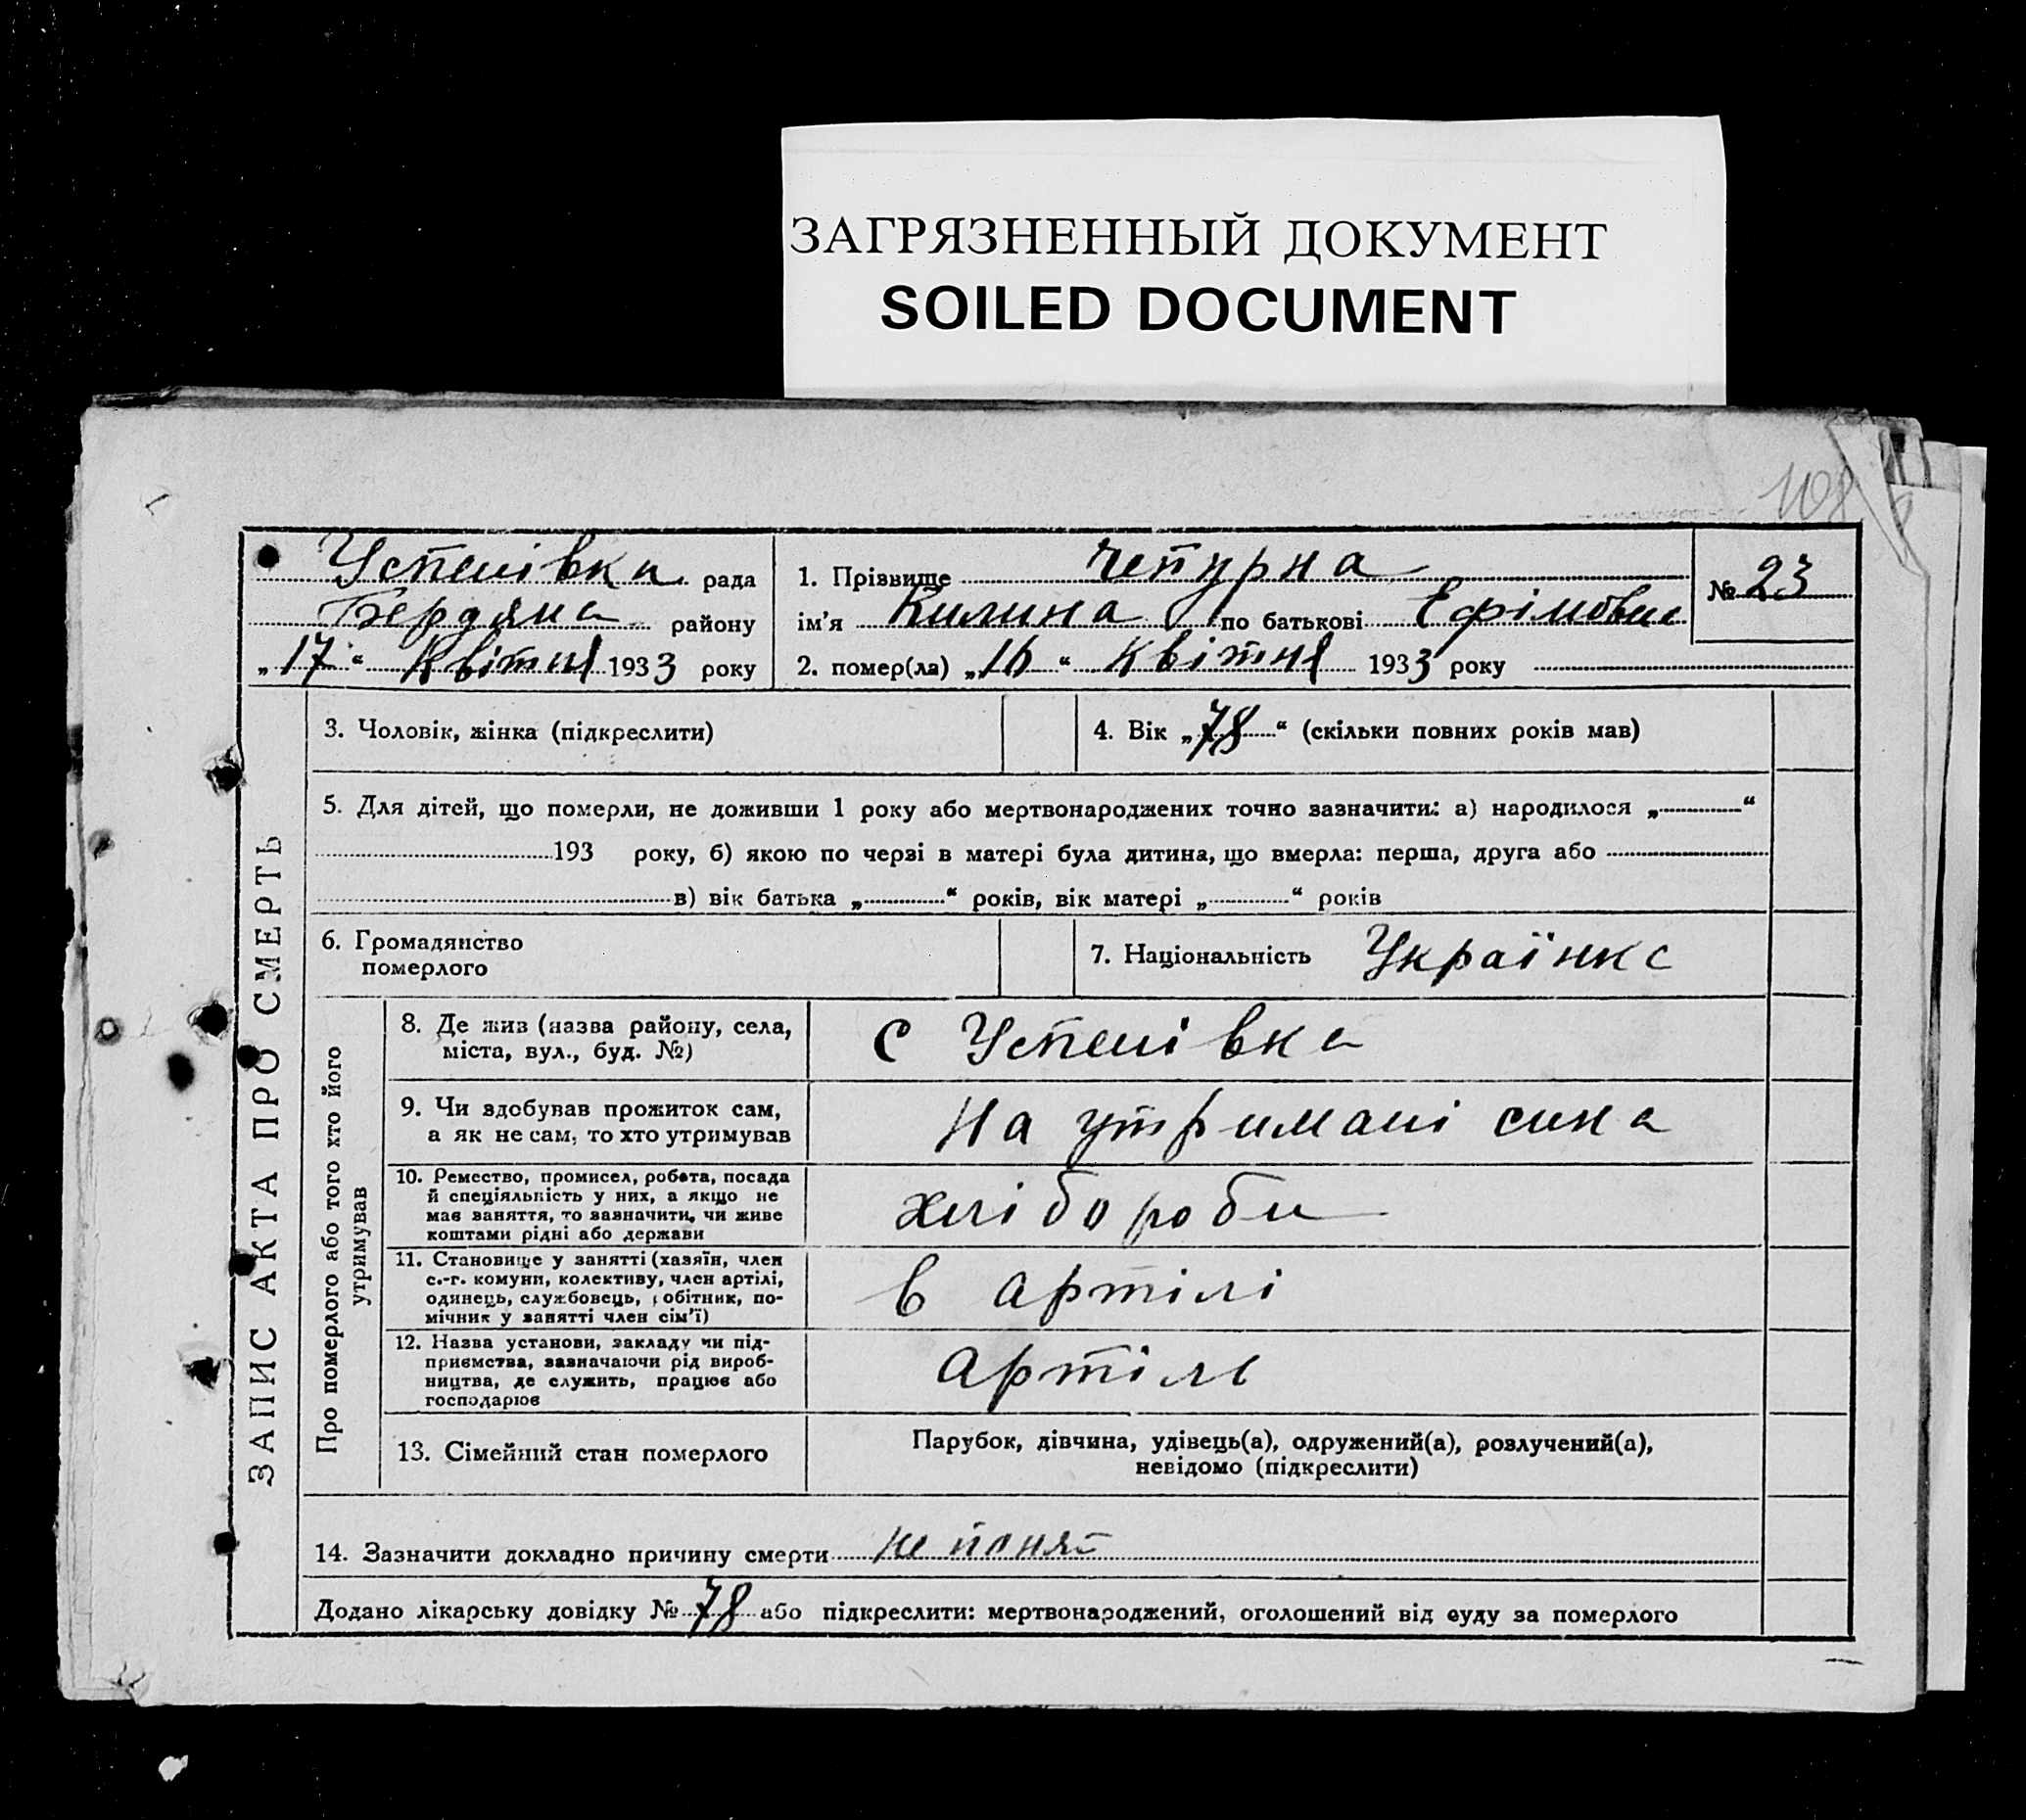 ЗАГРЯЗНЕННЫЙ ДОКУМЕНТ
SOILED DOCUMENT
108
Успенівка рада
Бердянс району
„17“ Квітня 1933 року
1. Прізвище Чепурна
ім'я Килина по батькові Ефімовна
2. помер(ла) „16“ Квітня 1933 року
№ 23
ЗАПИС АКТА ПРО СМЕРТЬ
3. Чоловік, жінка (підкреслити)
4. Вік „78“ (скільки повних років мав)
5. Для дітей, що померли, не доживши 1 року або мертвонароджених точно зазначити: а) народилося „ “
193 року, б) якою по черзі в матері була дитина, що вмерла: перша, друга або
в) вік батька „ “ років, вік матері „ “ років
6. Громадянство
померлого
7. Національність Українка
Про померлого або того хто його
утримував
8. Де жив (назва району, села,
міста, вул., буд. №)
с Успенівка
9. Чи здобував прожиток сам,
а як не сам, то хто утримував
На утримані сина
10. Ремество, промисел, робота, посада
й спеціяльність у них, а якщо не
має заняття, то зазначити, чи живе
коштами рідні або держави
хлібороби
11. Становище у занятті (хазяїн, член
с.-г. комуни, колективу, член артілі,
одинець, службовець, робітник, по-
мічник у занятті член сім'ї)
в артілі
12. Назва установи, закладу чи під-
приємства, зазначаючи рід вироб-
ництва, де служить, працює або
господарює
артіль
13. Сімейний стан померлого
Парубок, дівчина, удівець(а), одружений(а), розлучений(а),
невідомо (підкреслити)
14. Зазначити докладно причину смерти не понят
Додано лікарську довідку № 78 або підкреслити: мертвонароджений, оголошений від суду за померлого